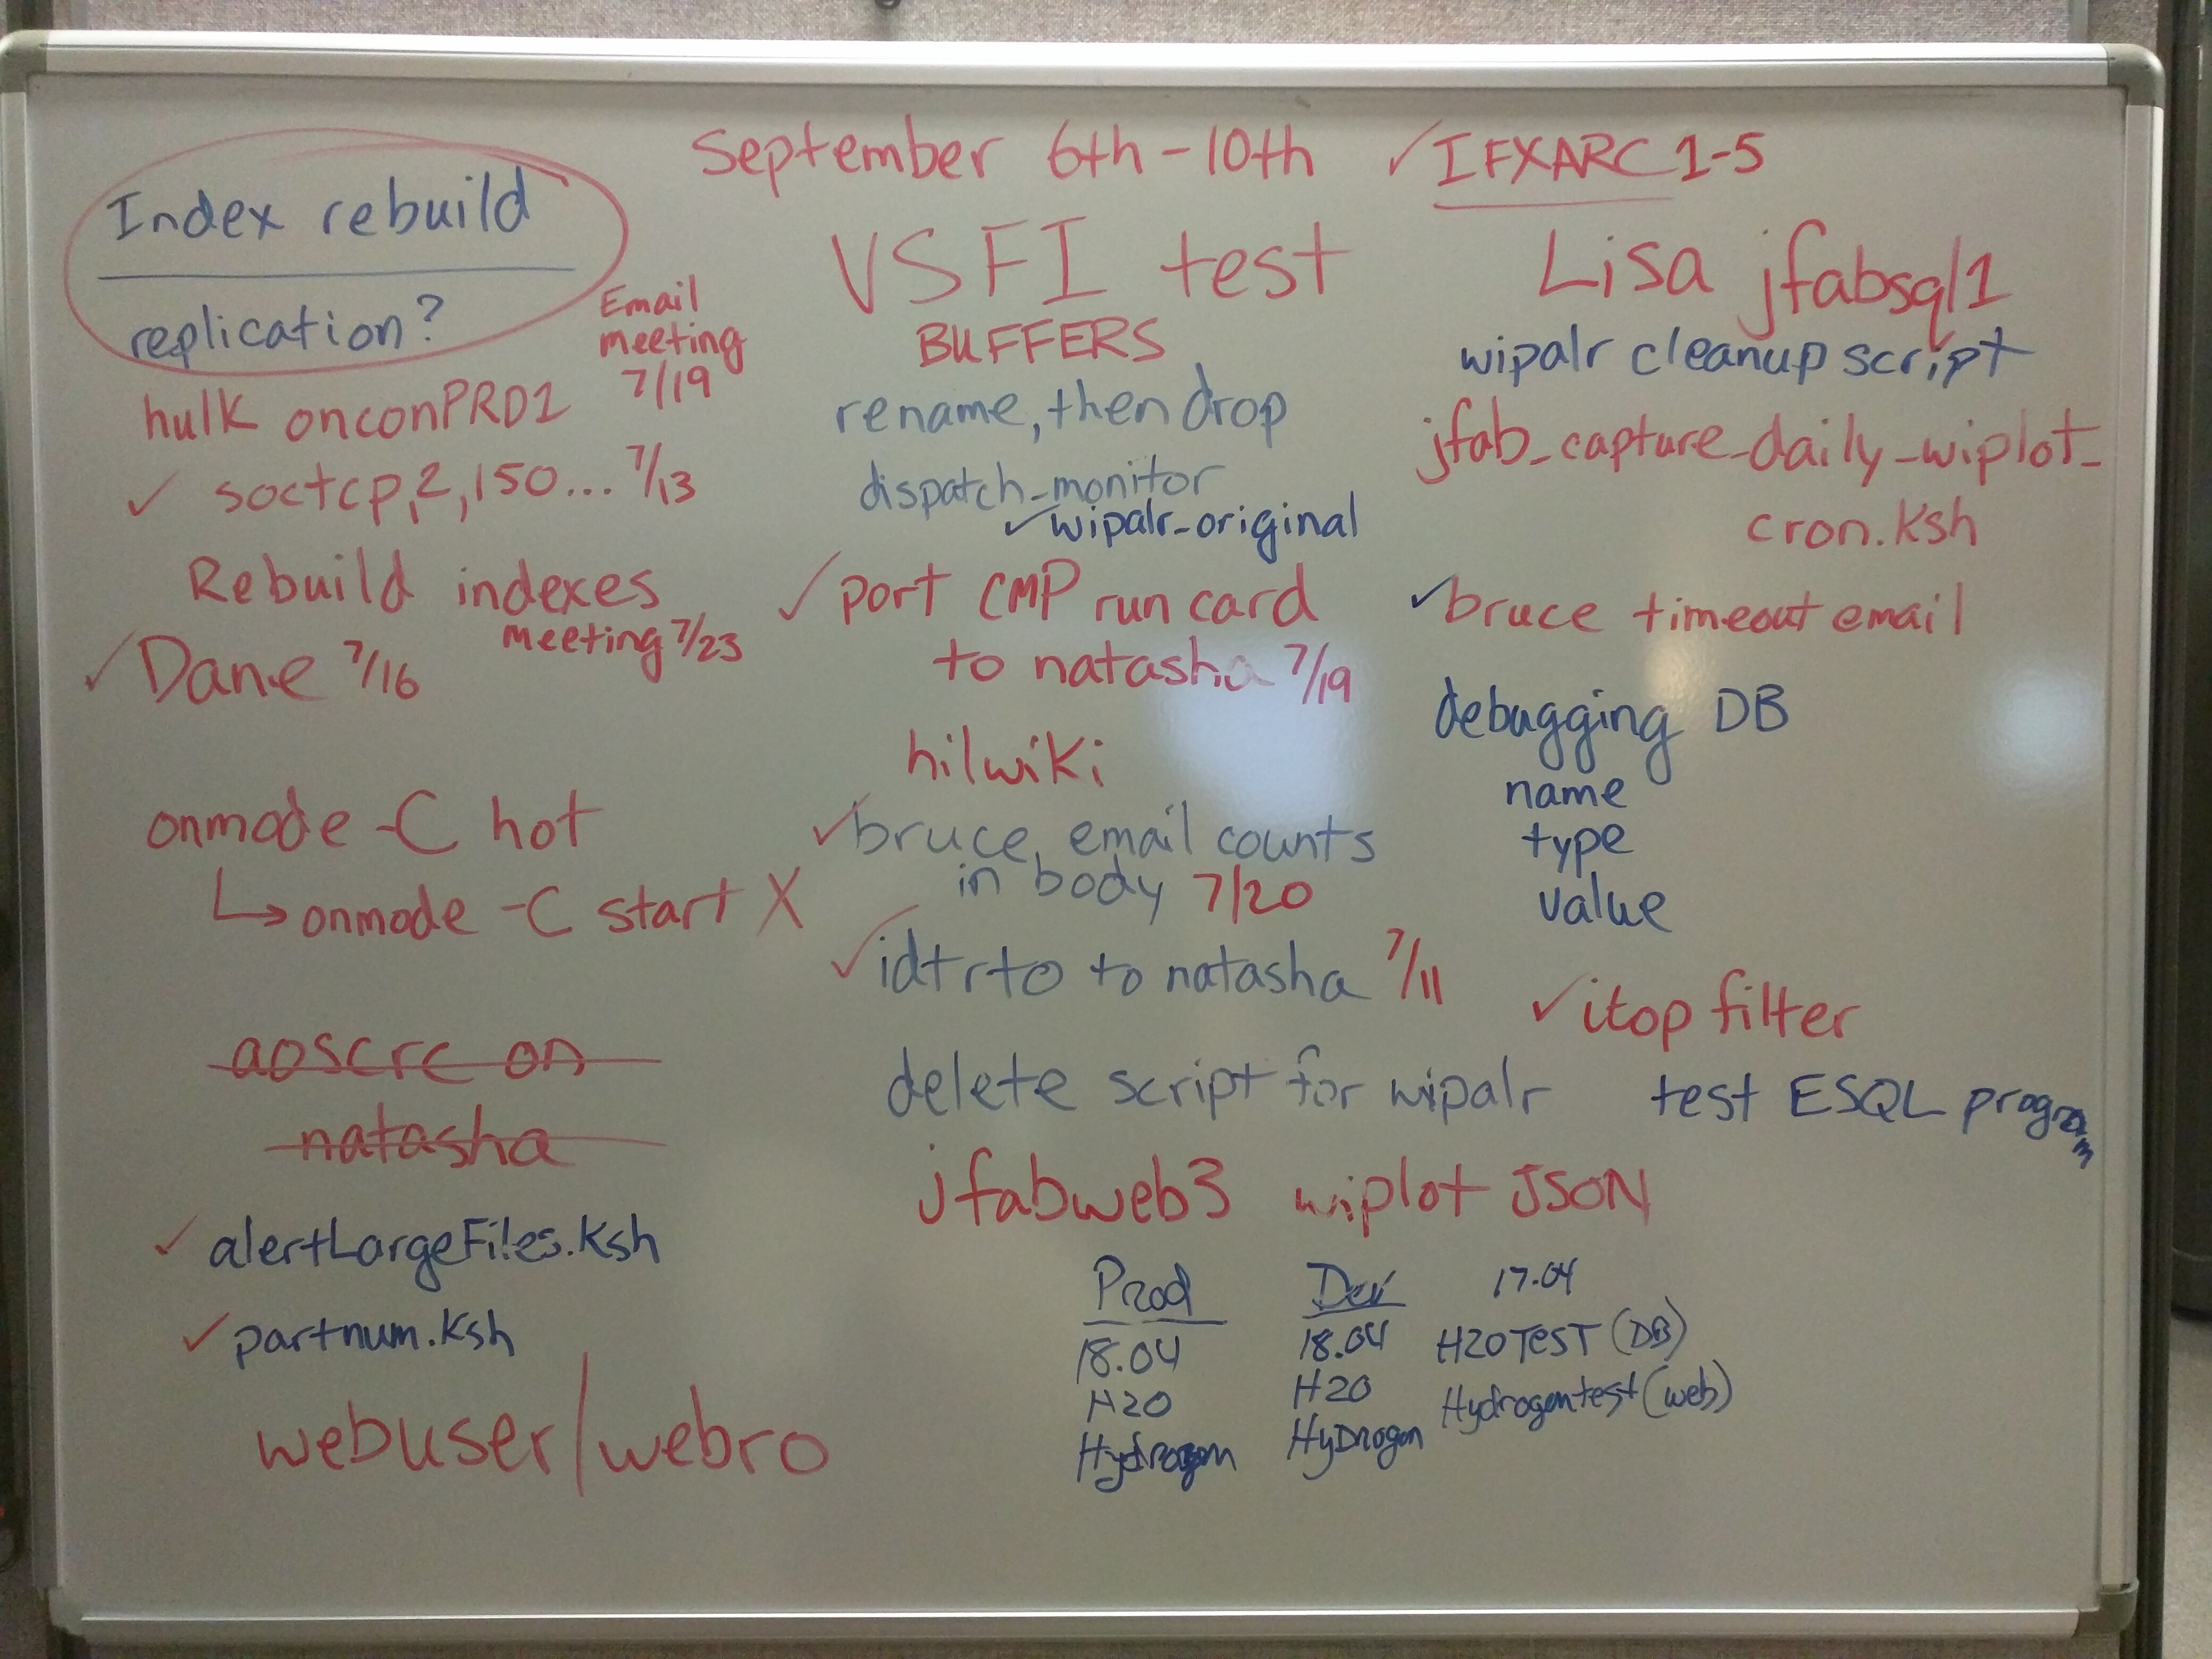 September 6th-10th ✓IFXARC 1-5
Index rebuild
replication?
Email
meeting
7/19
hulk onconPRD1
✓ soctcp,2,150... 7/13
Rebuild indexes
meeting 7/23
✓Dane 7/16
onmode -C hot
↳onmode -C start X
aoscrc on
natasha
✓ alertLargeFiles.ksh
✓ partnum.ksh
webuser/webro
VSFI test
BUFFERS
rename, then drop
dispatch_monitor
✓wipalr_original
✓port CMP run card
to natasha 7/19
hilwiki
✓bruce email counts
in body 7/20
✓idtrto to natasha 7/11
delete script for wipalr
jfabweb3 wiplot JSON
Lisa jfabsql1
wipalr cleanup script
jfab_capture_daily_wiplot_
cron.ksh
✓bruce timeout email
debugging DB
name
type
value
✓itop filter
test ESQL program
Prod Dev 17.04
18.04 18.04 H20TEST (DB)
H20 H20 Hydrogentest (web)
Hydrogen HyDrogen